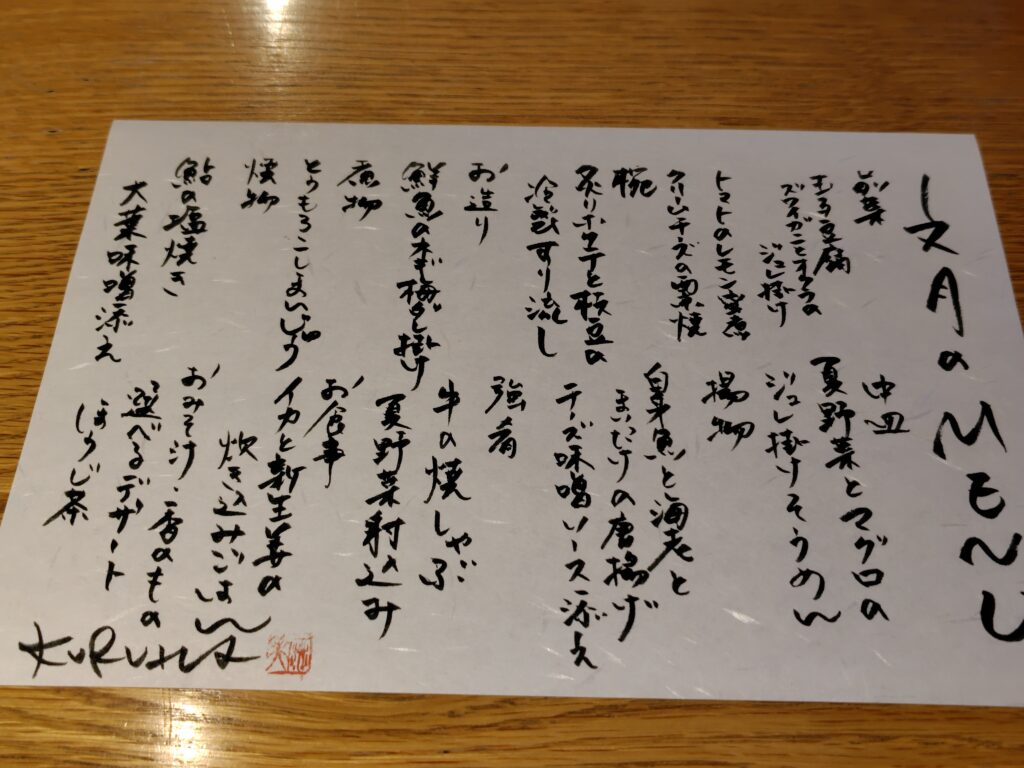 文月のMENU
前菜
もろこし豆腐
ズワイガニとオクラの
ジュレ掛け
トマトのレモン蜜煮
クリームチーズの粟焼
椀
炙りホタテと枝豆の
冷製すり流し
お造り
鮮魚のネギ梅ダレ掛け
煮物
とうもろこしまんじゅう
焼物
鮎の塩焼き
大葉味噌添え
中皿
夏野菜とマグロの
ジュレ掛けそうめん
揚物
白身魚と海老と
まいたけの唐揚げ
チーズ味噌ソース添え
強肴
牛の焼しゃぶ
夏野菜射込み
お食事
イカと新生姜の
炊き込みごはん
おみそ汁、香のもの
選べるデザート
ほうじ茶